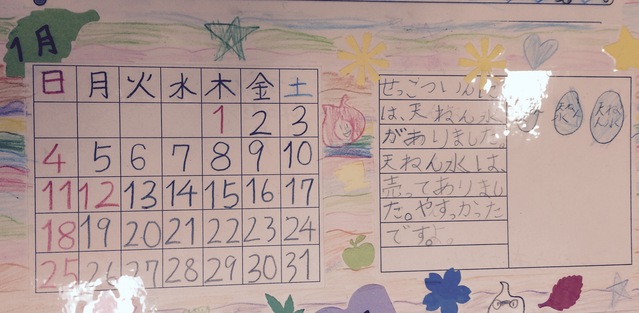 1月
日 月 火 水 木 金 土
1 2 3
4 5 6 7 8 9 10
11 12 13 14 15 16 17
18 19 20 21 22 23 24
25 26 27 28 29 30 31
せっこついんに
は、天ねん水
がありました。
天ねん水は、
売ってありまし
た。やすかった
です。
天ねん水
天ねん水